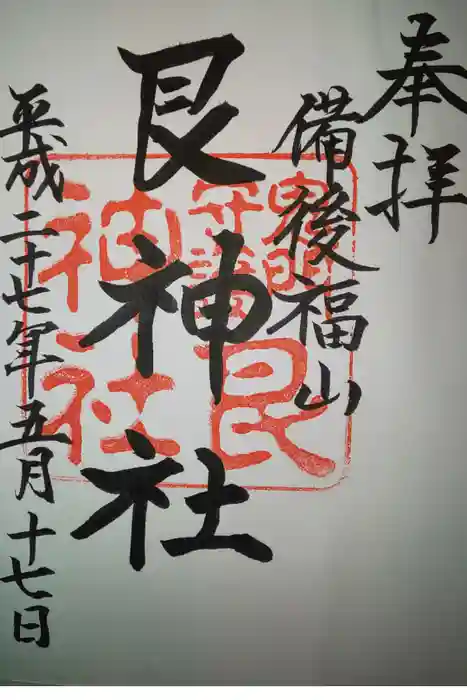 奉拝
備後福山
艮神社
平成二十七年五月十七日
艮
神社